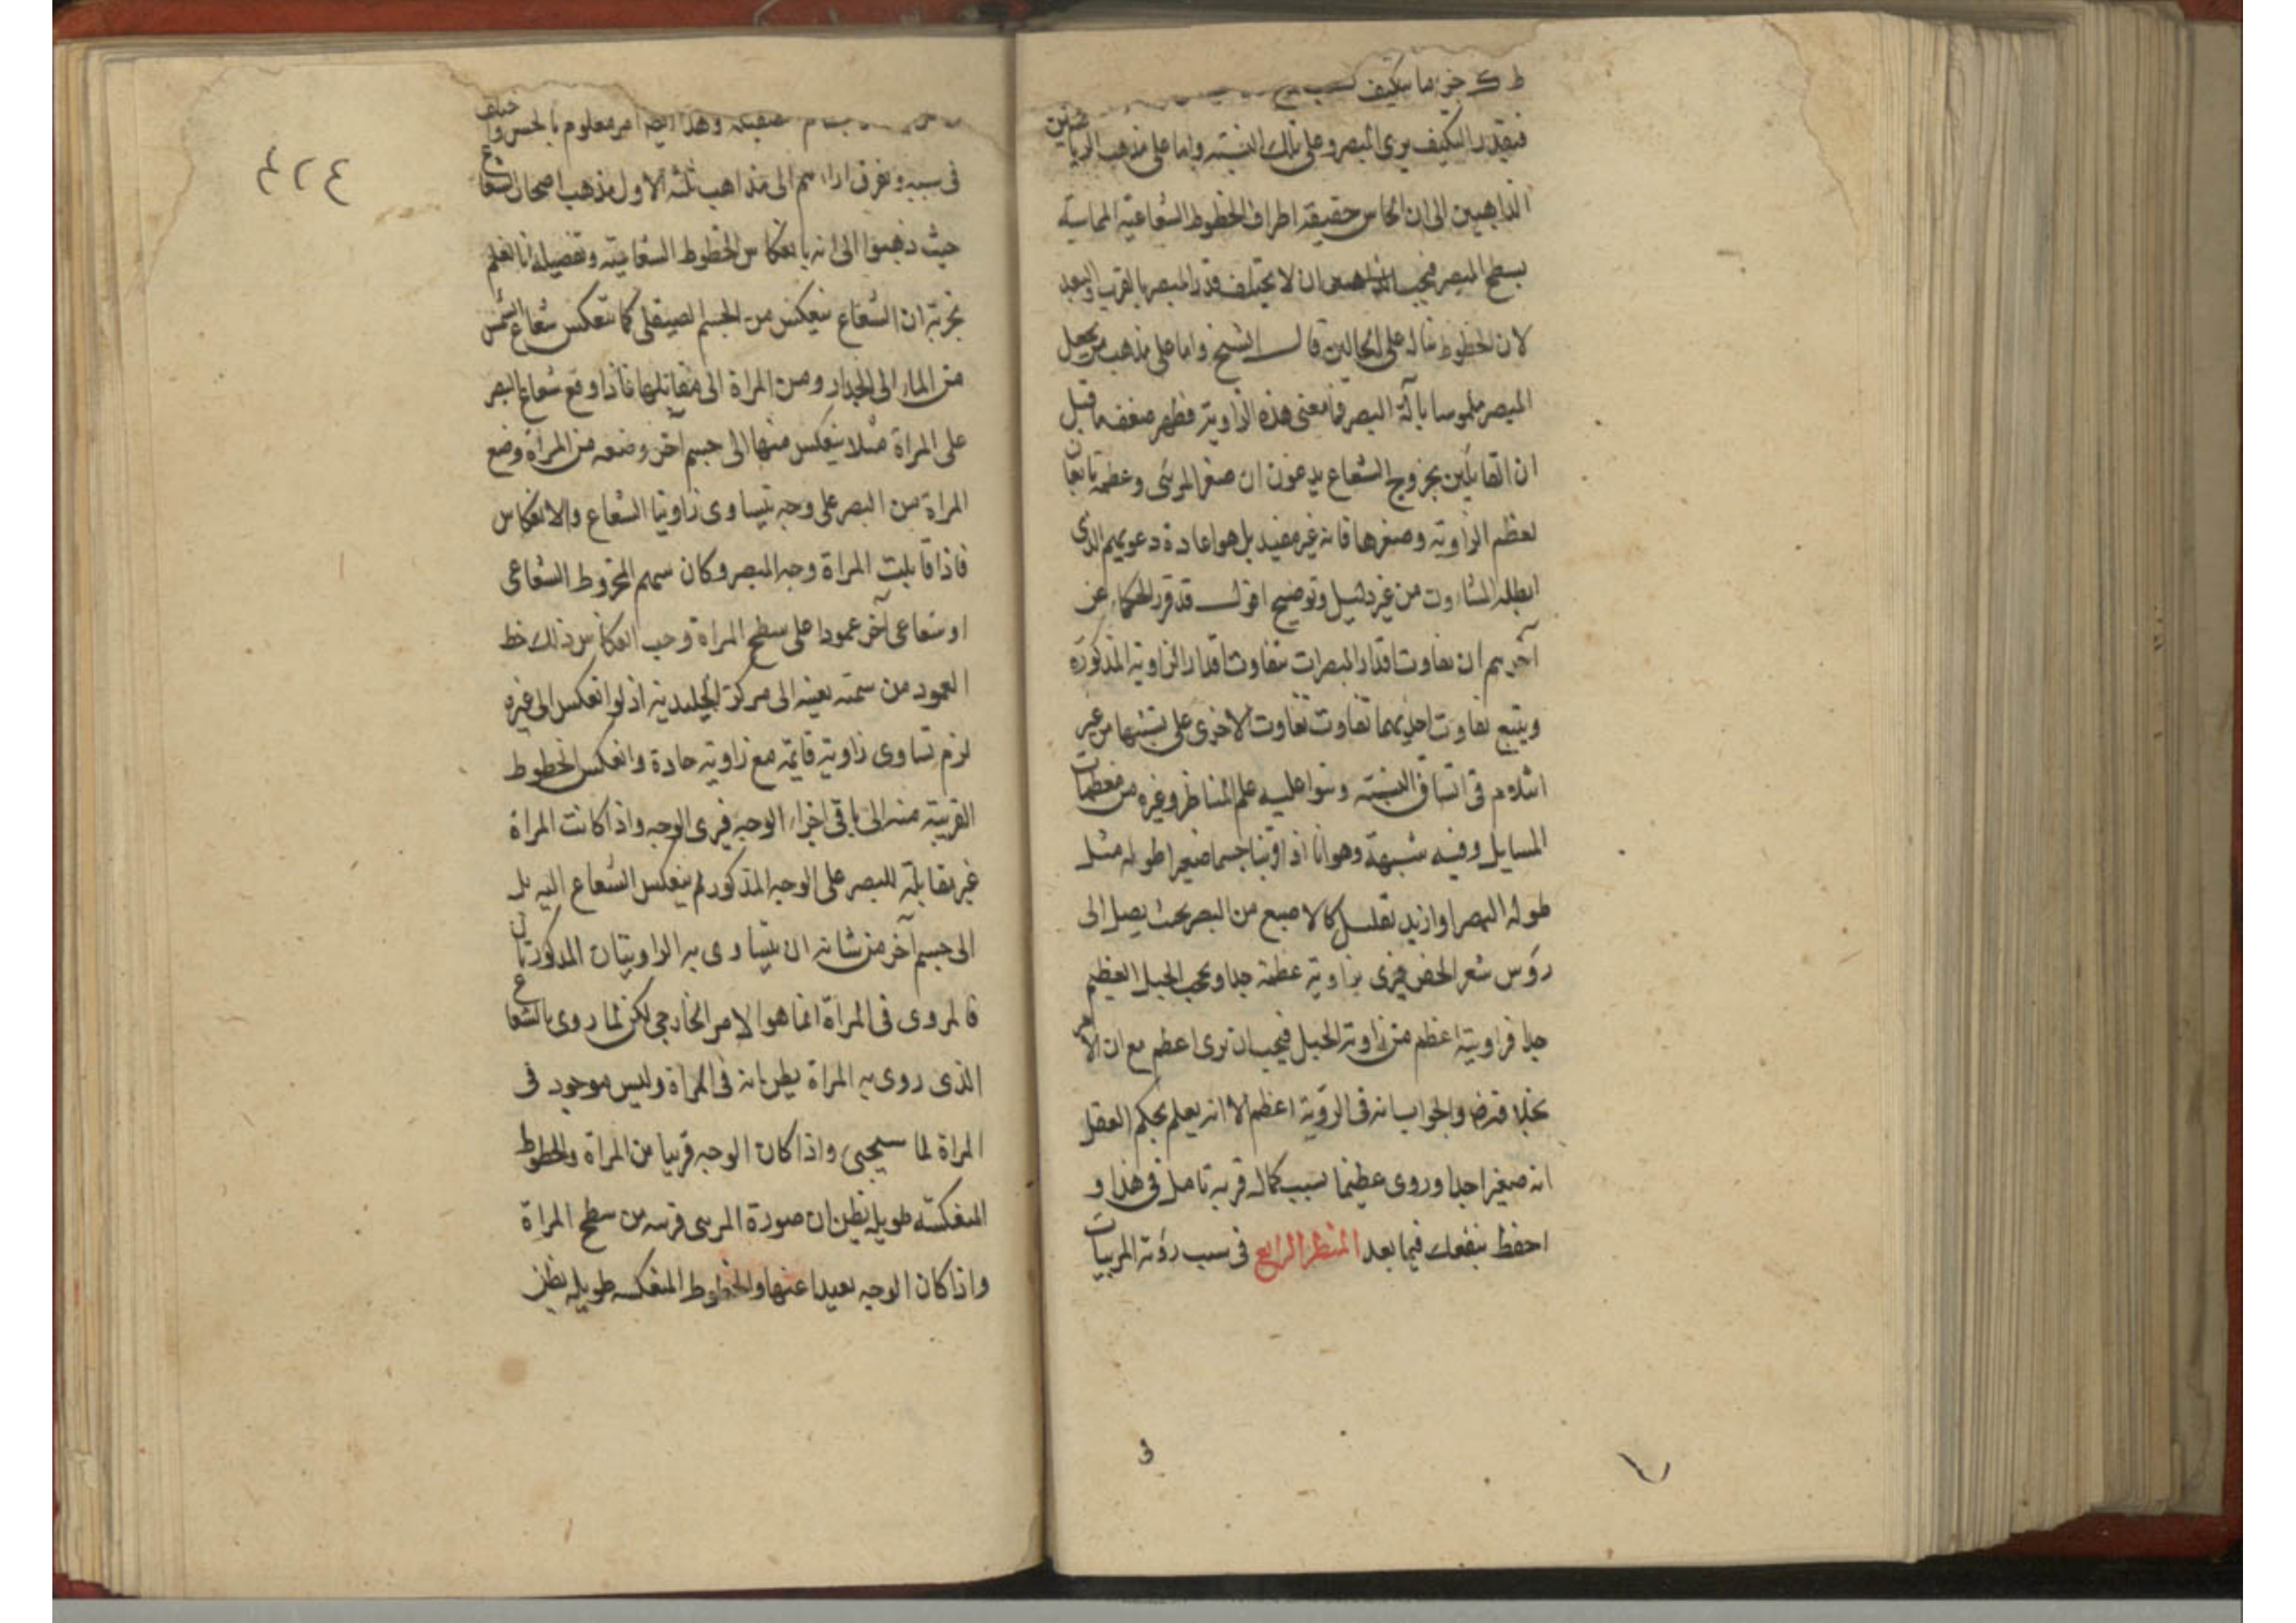 جزء ما يتكيف
فبقدر التكيف يرى المبصر وعلى تلك النسبة واما على مذهب الرياضيين
الذاهبين الى ان الحاس حقيقة اطراف الخطوط الشعاعية المماسة
بسطح المبصر فيجب ان لا يختلف قدر المبصر بالقرب والبعد
لان الخطوط تناله على الحالين قال الشيخ واما على مذهب من يجعل
المبصر ملموسا بآلة البصر فما معنى هذه الزاوية فظهر ضعف ما قيل
ان القايلين بخروج الشعاع يدعون ان صغر المرئى وعظمه تابعان
لعظم الزاوية وصغرها فانه غير مفيد بل هو اعادة دعويهم الذى
ابطله المشاؤن من غير دليل وتوضيح اقول قد قرر الحكماء عن
آخرهم ان تفاوت اقدار المبصرات بتفاوت اقدار الزاوية المذكورة
ويتبع تفاوت احديهما تفاوت تفاوت الاخرى على نسبتها من غير
انثلام فى اتساق النسبة وبنوا عليه علم المناظر وغيره من معظمات
المسايل وفيه شبهة وهو انا اذا قربنا جسما صغيرا طوله مثل
طول البصر او ازيد بقليل كالاصبع من البصر بحيث يصل الى
رؤس شعر الجفن فيرى بزاوية عظيمة جدا ويحجب الجبل العظيم
جدا فزاويته اعظم من زاوية الجبل فيجب ان ترى اعظم مع ان الامر
بخلافه والجواب انه فى الرؤية اعظم الا انه يعلم بحكم العقل
انه صغير جدا وروى عظيما بسبب كمال قربه تامل فى هذا و
احفظ ينفعك فيما بعد المنظر الرابع فى سبب رؤية المرئيات
فى
٤٢٤
صقيلة وهذا ايضا امر معلوم بالحس واختلف
فى سببه وتفرق اراءهم الى مذاهب ثلثة الاول مذهب اصحاب الشعاع
حيث ذهبوا الى انه بانعكاس الخطوط الشعاعية وتفصيله انا نعلم
بتجربة ان الشعاع ينعكس من الجسم الصيقلى كما تنعكس شعاع الشمس
من الماء الى الجدار ومن المراة الى مقابلها فاذا وقع شعاع البصر
على المراة مثلا ينعكس منها الى جسم آخر وضعه من المراة وضع
المراة من البصر على وجه يتساوى زاويتا الشعاع والانعكاس
فاذا قابلت المراة وجه المبصر وكان سهم المخروط الشعاعى
او شعاعى آخر عمودا على سطح المراة وجب انعكاس ذلك خط
العمود من سمته بعينه الى مركز الجليدية اذ لو انعكس الى غيره
لزم تساوى زاوية قايمة مع زاوية حادة وانعكس الخطوط
القريبة منه الى باقى اجزاء الوجه فيرى الوجه واذا كانت المراة
غير مقابلة للبصر على الوجه المذكور لم ينعكس الشعاع اليه بل
الى جسم آخر من شانه ان يتساوى به الزاويتان المذكورتان
فالمروى فى المراة انما هو الامر الخارجى لكن لما روى بالشعاع
الذى روى به المراة يظن انه فى المراة وليس موجود فى
المراة لما سيجئ واذا كان الوجه قريبا من المراة والخطوط
المنعكسة طويلة نظن ان صورة المرئى قريبه من سطح المراة
واذا كان الوجه بعيدا عنها والخطوط المنعكسه طويله يظن